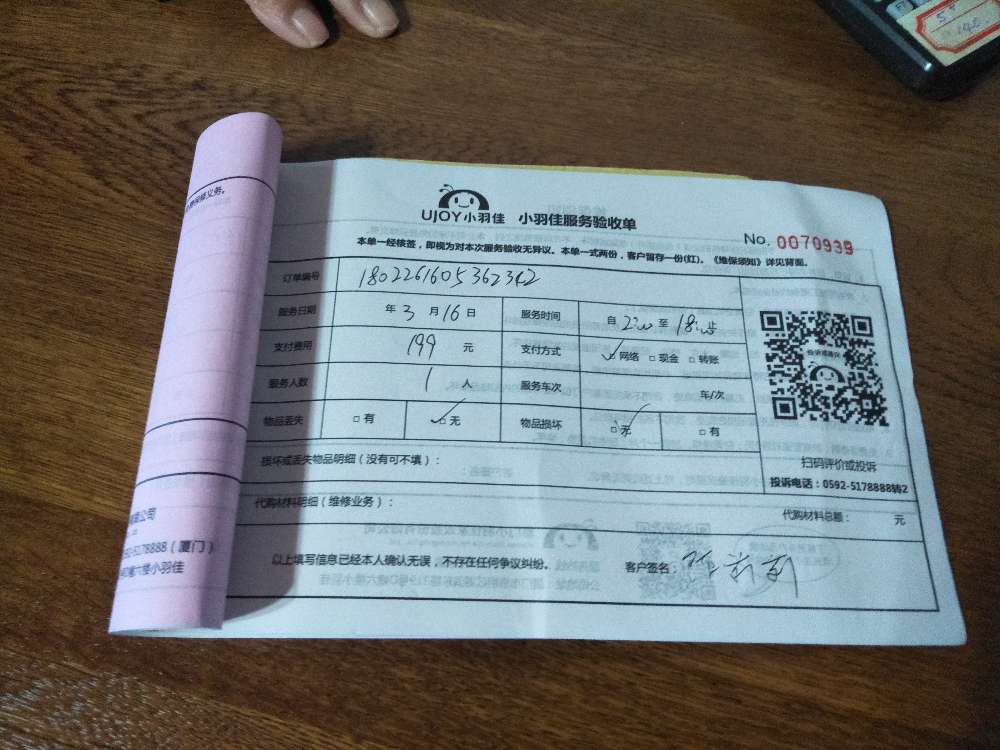 UJOY小羽佳 小羽佳服务验收单
No. 0070939
本单一经核签，即视为对本次服务验收无异议。本单一式两份，客户留存一份(红)。《维保须知》详见背面。
订单编号 1802261605362342
服务日期 年 3 月 16 日 服务时间 自 2:00 至 18:00
支付费用 199 元 支付方式 ✓□网络 □现金 □转账
服务人数 1 人 服务车次 车/次
物品丢失 □有 ✓□无 物品损坏 ✓□无 □有
扫码评价或投诉
投诉电话：0592-5178888转2
损坏或丢失物品明细（没有可不填）：
代购材料明细（维修业务）： 代购材料总额： 元
以上填写信息已经本人确认无误，不存在任何争议纠纷。 客户签名：
保修义务。
公司
-5178888（厦门）
楼六楼小羽佳